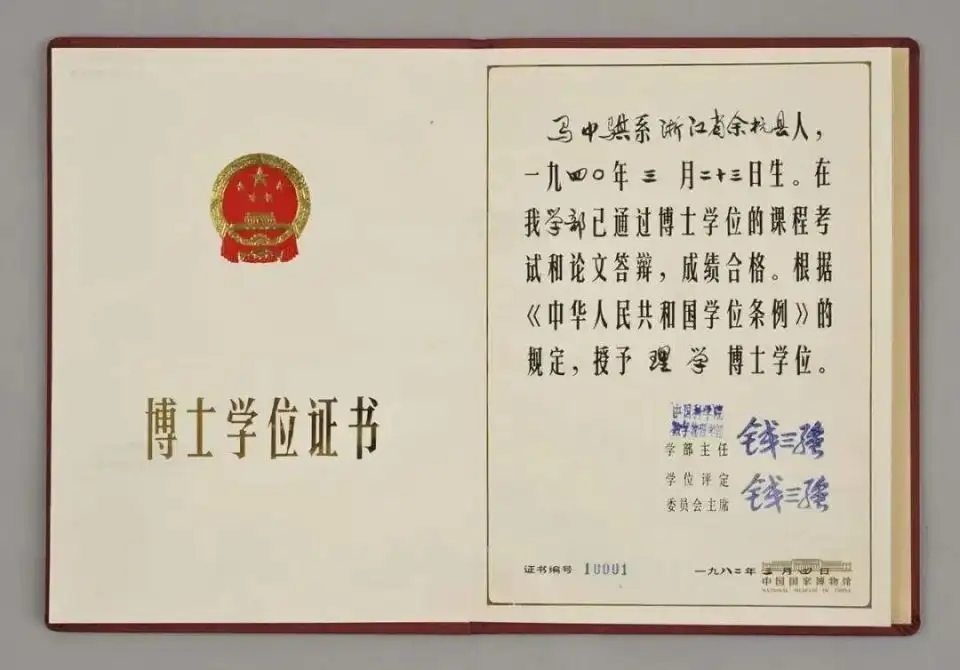 博士学位证书
马中骐系浙江省余杭县人，
一九四〇年三月二十三日生。在
我学部已通过博士学位的课程考
试和论文答辩，成绩合格。根据
《中华人民共和国学位条例》的
规定，授予理学博士学位。
中国科学院
学部主任 钱三强
学位评定
委员会主席 钱三强
证书编号 10001
一九八二年三月四日
中国国家博物馆
NATIONAL MUSEUM OF CHINA